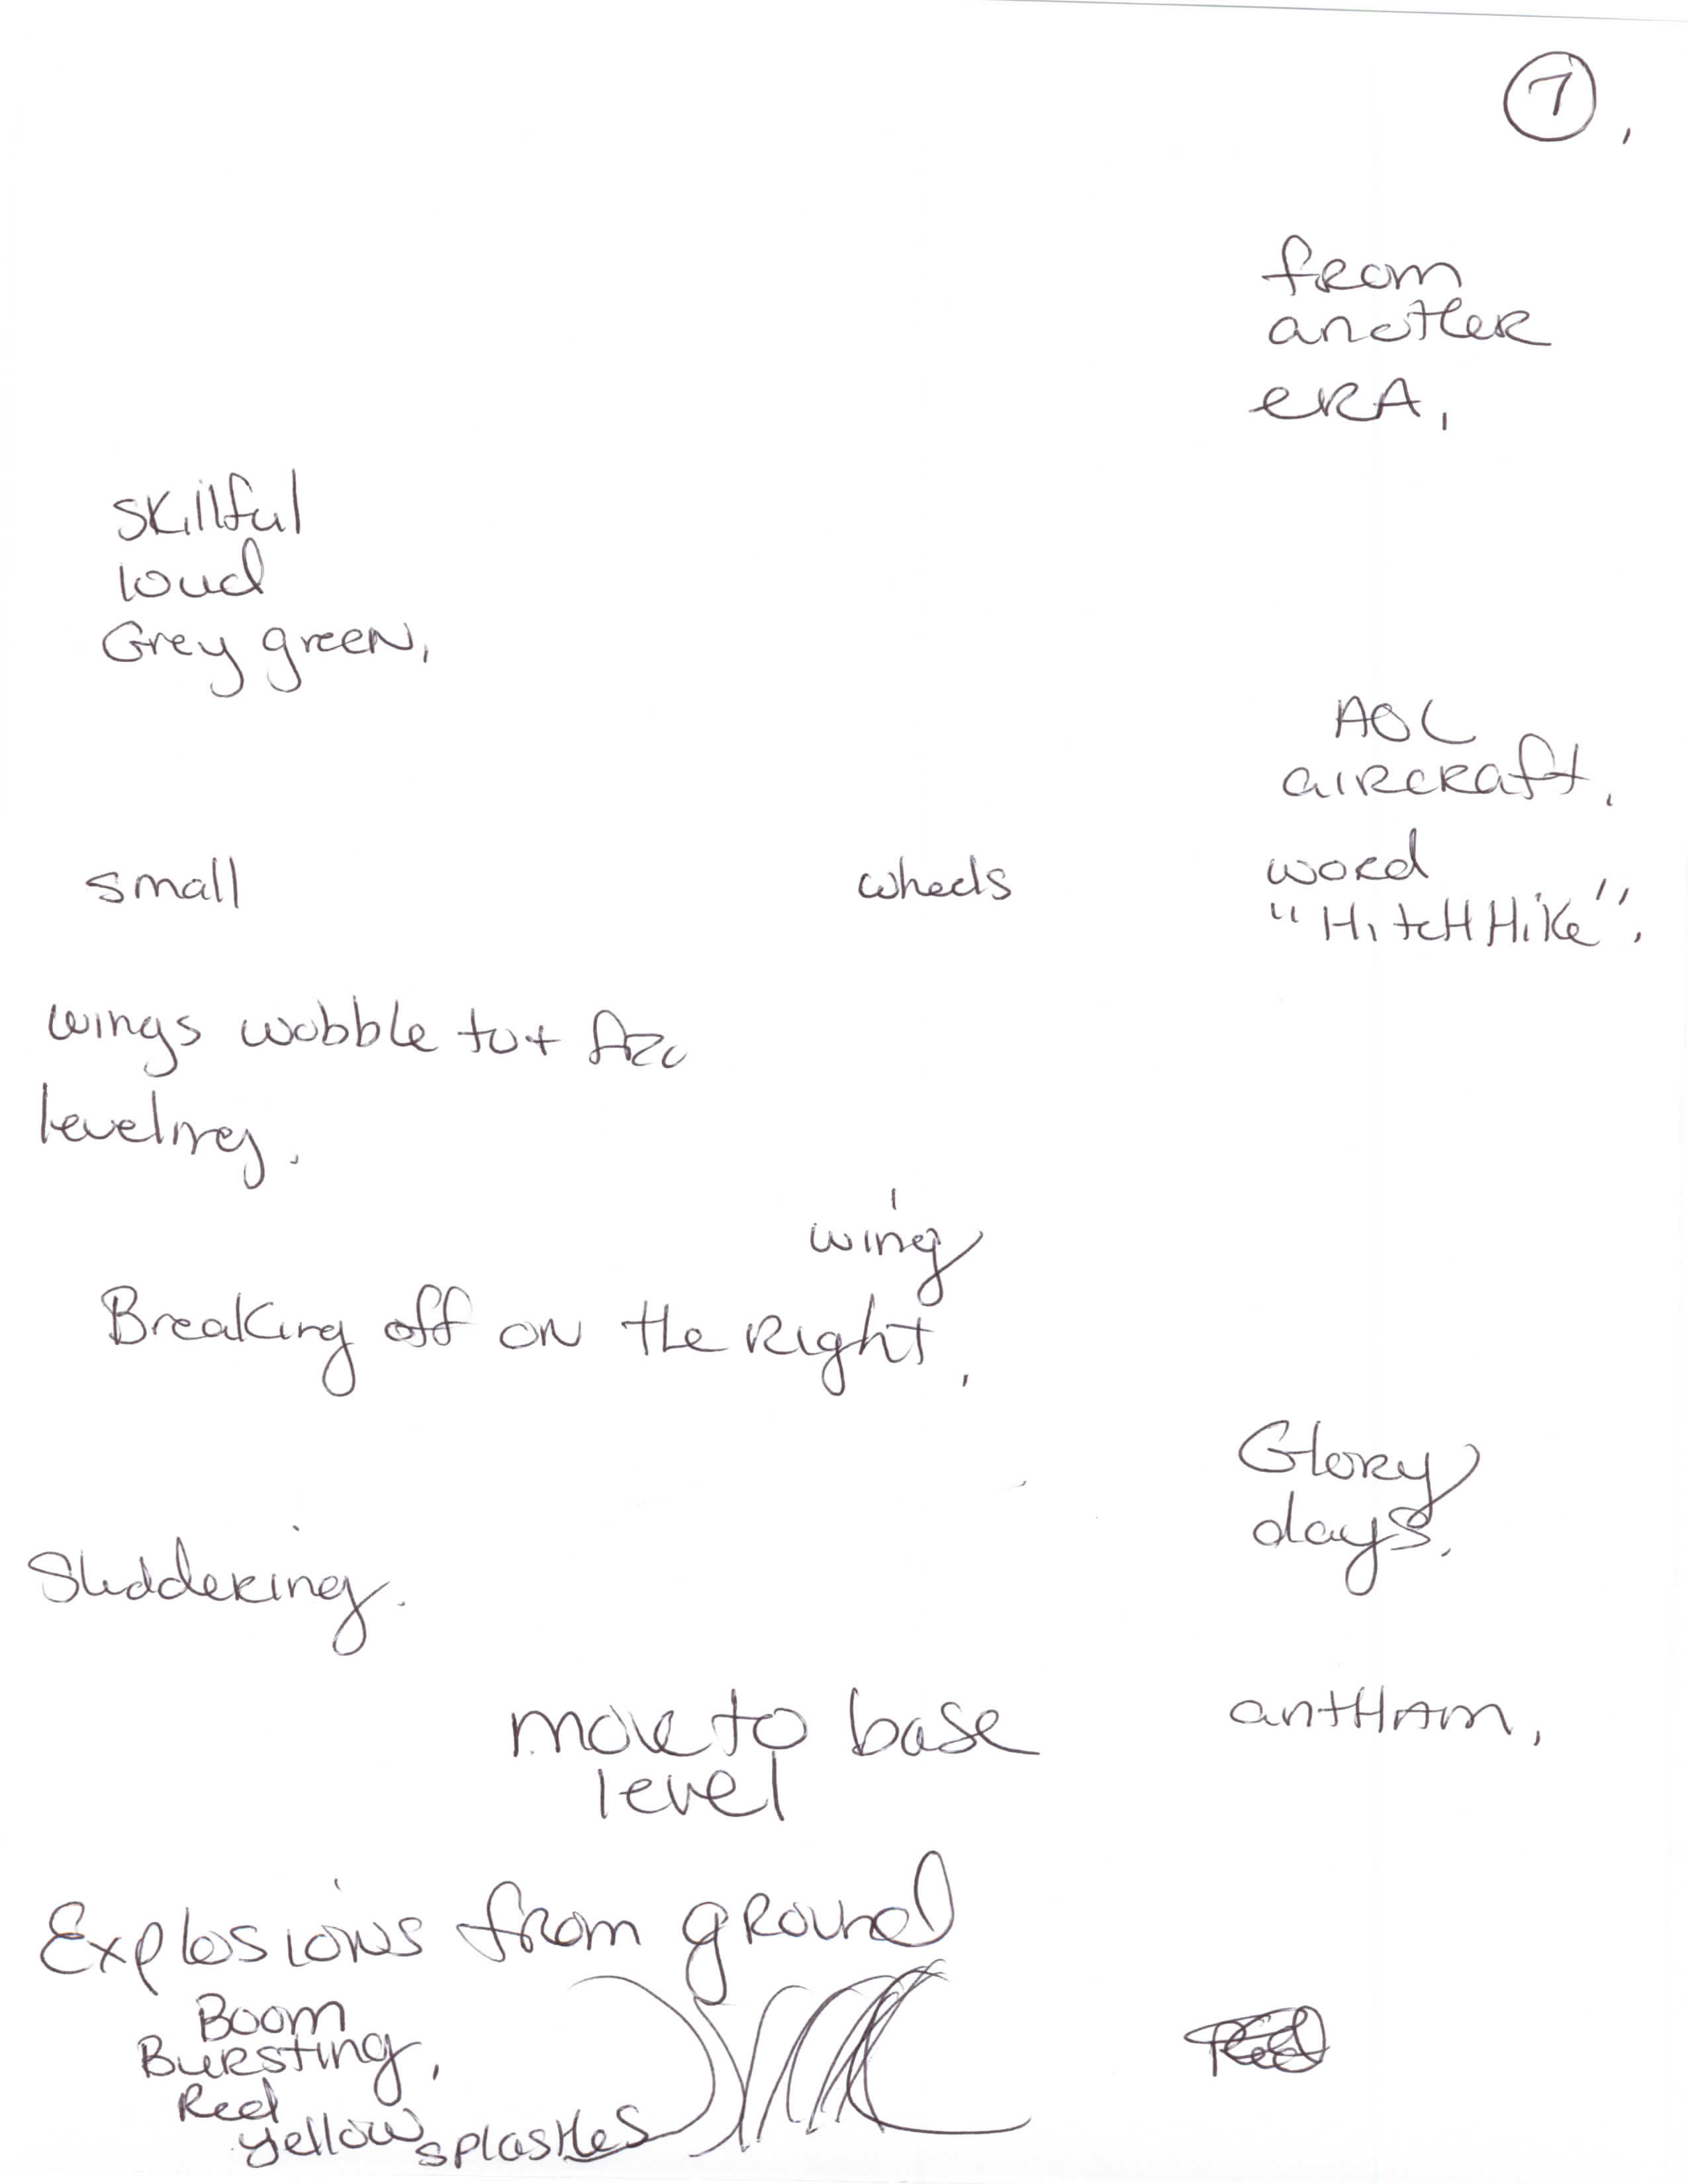 7.
from
another
ERA.
skillful
loud
Grey green.
AOL
aircraft.
small
wheels
word
"HitchHike".
wings wobble to +
leveling.
wing
Breaking off on the Right.
Glory
days.
Shuddering.
move to base
level
antHAm.
Explosions from ground
Boom
Bursting.
Red
yellow splashes